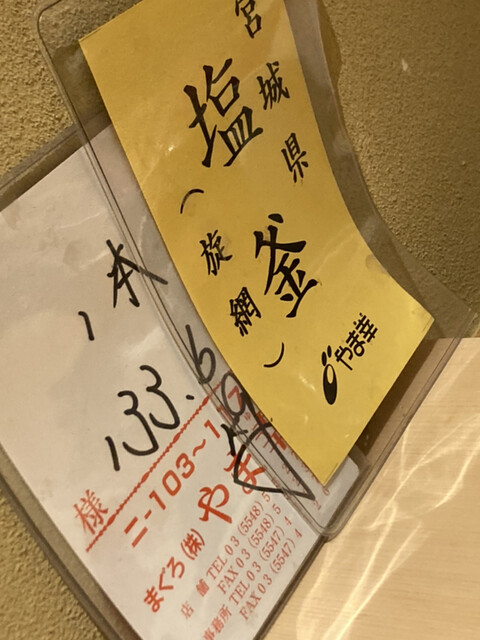 宮城県
塩釜
（旋網）
やま幸
1本
133.6
様
ニ-103~1
まぐろ(株) やま
店舗 TEL 03 (5548) 5
FAX 03 (5548) 5
事務所 TEL 03 (5547) 4
FAX 03 (5547) 4